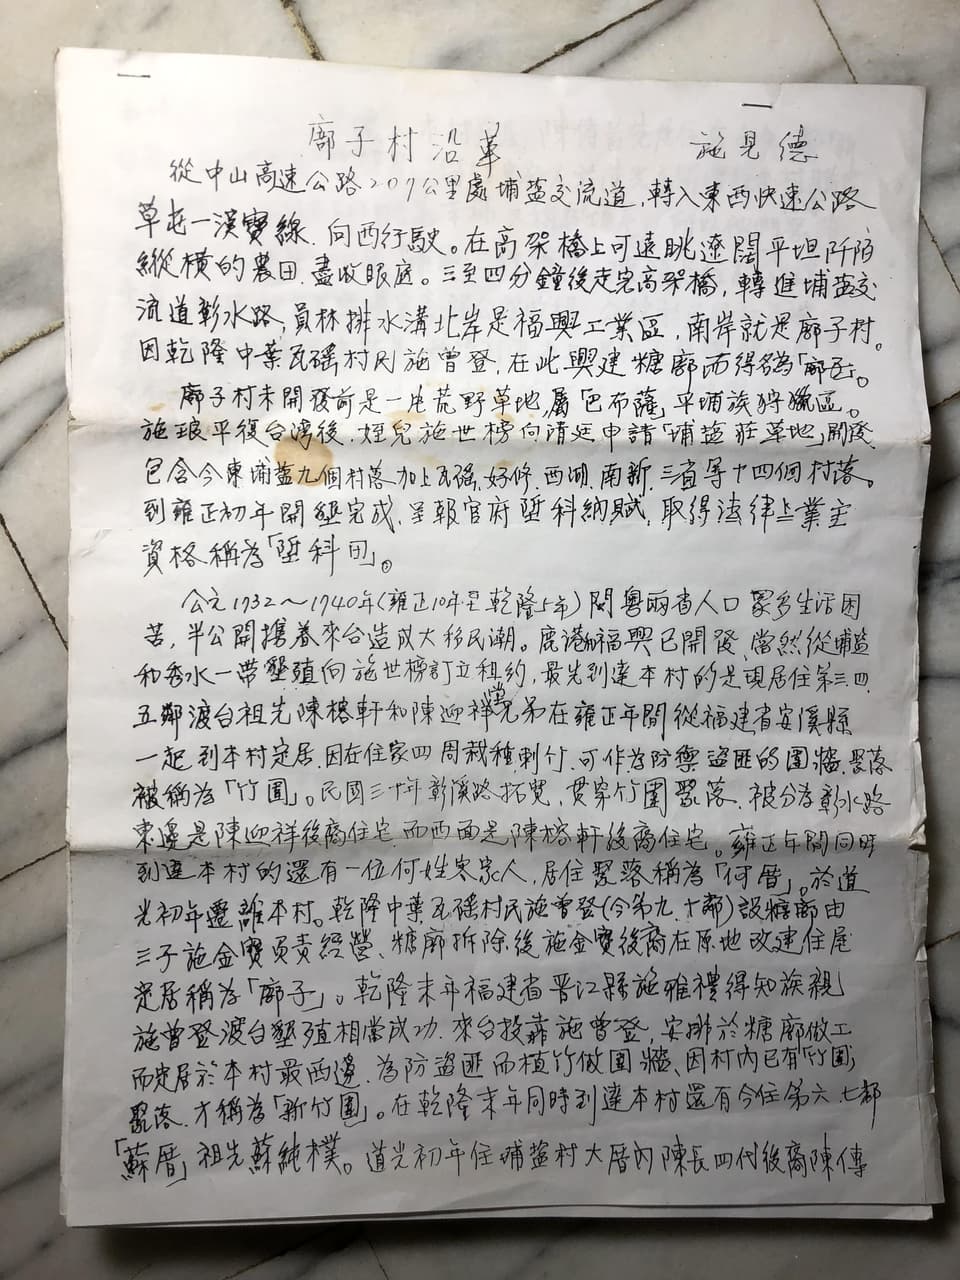 廍子村沿革 施見德
從中山高速公路207公里處埔盐交流道,轉入東西快速公路
草屯一漢寶線.向西行駛。在高架橋上可遠眺遼闊平坦阡陌
縱橫的農田.盡收眼底。三至四分鐘後走完高架橋,轉進埔盐交
流道彰水路,員林排水溝北岸是福興工業區,南岸就是廍子村。
因乾隆中葉瓦磘村民施曾登,在此興建糖廍而得名為「廍子」。
廍子村未開發前是一片荒野草地,屬「巴布薩」平埔族狩獵區。
施琅平復台湾後.姪兒施世榜向清廷申請「埔盐莊草地」開發
包含今東埔盐九個村落加上瓦磘.好修.西湖.南新.三省等十四個村落。
到雍正初年開墾完成.呈報官府陞科納賦.取得法律上業主
資格稱為「陞科田」。
公元1732～1740年(雍正10年至乾隆5年)閩粵兩省人口眾多生活困
苦,半公開攜眷來台造成大移民潮。鹿港和福興已開發,當然從埔盐
和秀水一帶墾殖向施世榜訂立租約.最先到達本村的是現居住第三.四.
五鄰渡台祖先陳榕軒和陳迎祥堂兄弟在雍正年間從福建省安溪縣
一起到本村定居.因在住家四周栽種刺竹.可作為防禦盜匪的圍牆.聚落
被稱為「竹圍」。民國三十年彰溪路拓寬,貫穿竹圍聚落.被分為彰水路
東邊是陳迎祥後裔住宅.而西面是陳榕軒後裔住宅。雍正年間同時
到達本村的還有一位何姓客家人,居住聚落稱為「何厝」。於道
光初年遷離本村。乾隆中葉瓦磘村民施曾登(今第九.十鄰)設糖廍由
三子施金寶負責經營、糖廍拆除後施金寶後裔在原地改建住屋
定居稱為「廍子」。乾隆末年福建省晋江縣施雅禮得知族親
施曾登渡台墾殖相當成功.來台投靠施曾登,安排於糖廍做工
而定居於本村最西邊.為防盜匪而植竹做圍牆、因村內已有「竹圍」
聚落.才稱為「新竹圍」。在乾隆末年同時到達本村還有今住第六.七鄰
「蘇厝」祖先蘇純樸。道光初年住埔盐村大厝內陳長四代後裔陳傳